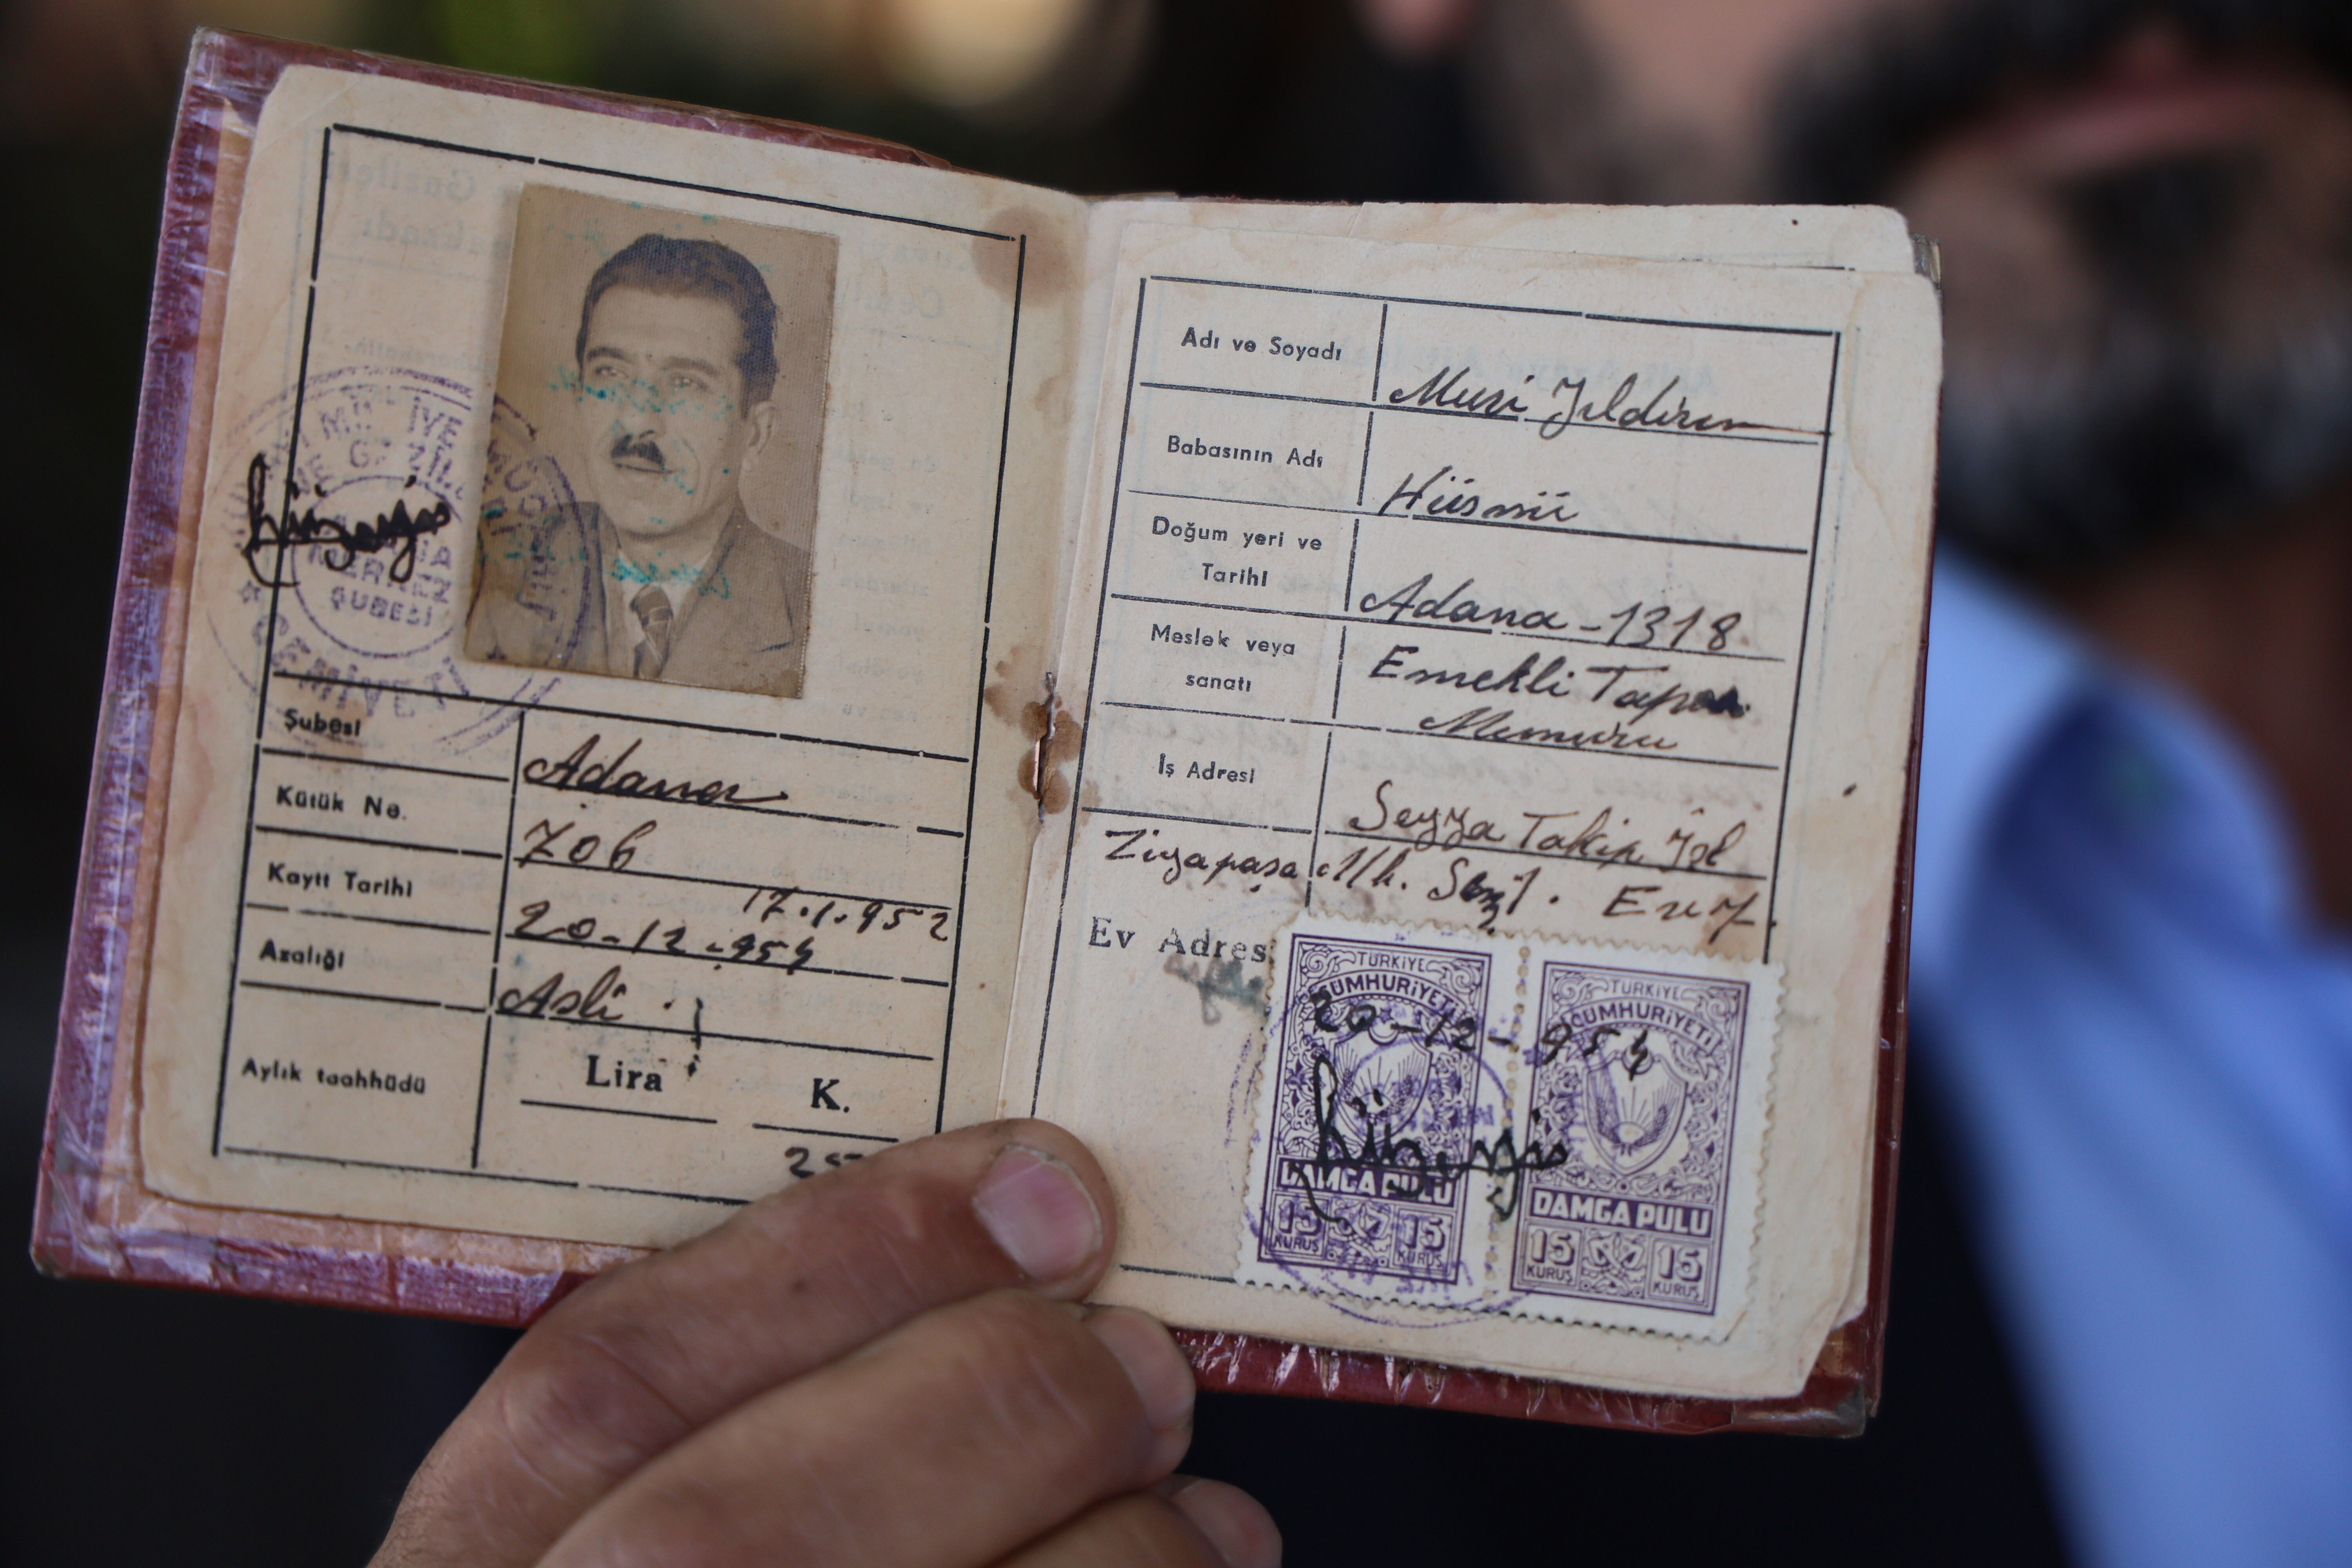 MERKEZ
ŞUBESİ
CEMİYETİ
Şubesi
Adana
Kütük No.
706
17.1.952
Kayıt Tarihi
20-12-954
Azalığı
Asli
Aylık taahhüdü
Lira
K.
Adı ve Soyadı
Musi Yıldırım
Babasının Adı
Hüsnü
Doğum yeri ve
Tarihi
Adana-1318
Meslek veya
sanatı
Emekli Tapu
Memuru
İş Adresi
Seyya Takip
Ziyapaşa Mh.
Ev Adres
TÜRKİYE
CUMHURİYETİ
20-12-954
DAMGA PULU
15 15
KURUŞ KURUŞ
TÜRKİYE
CUMHURİYETİ
DAMGA PULU
15 15
KURUŞ KURUŞ